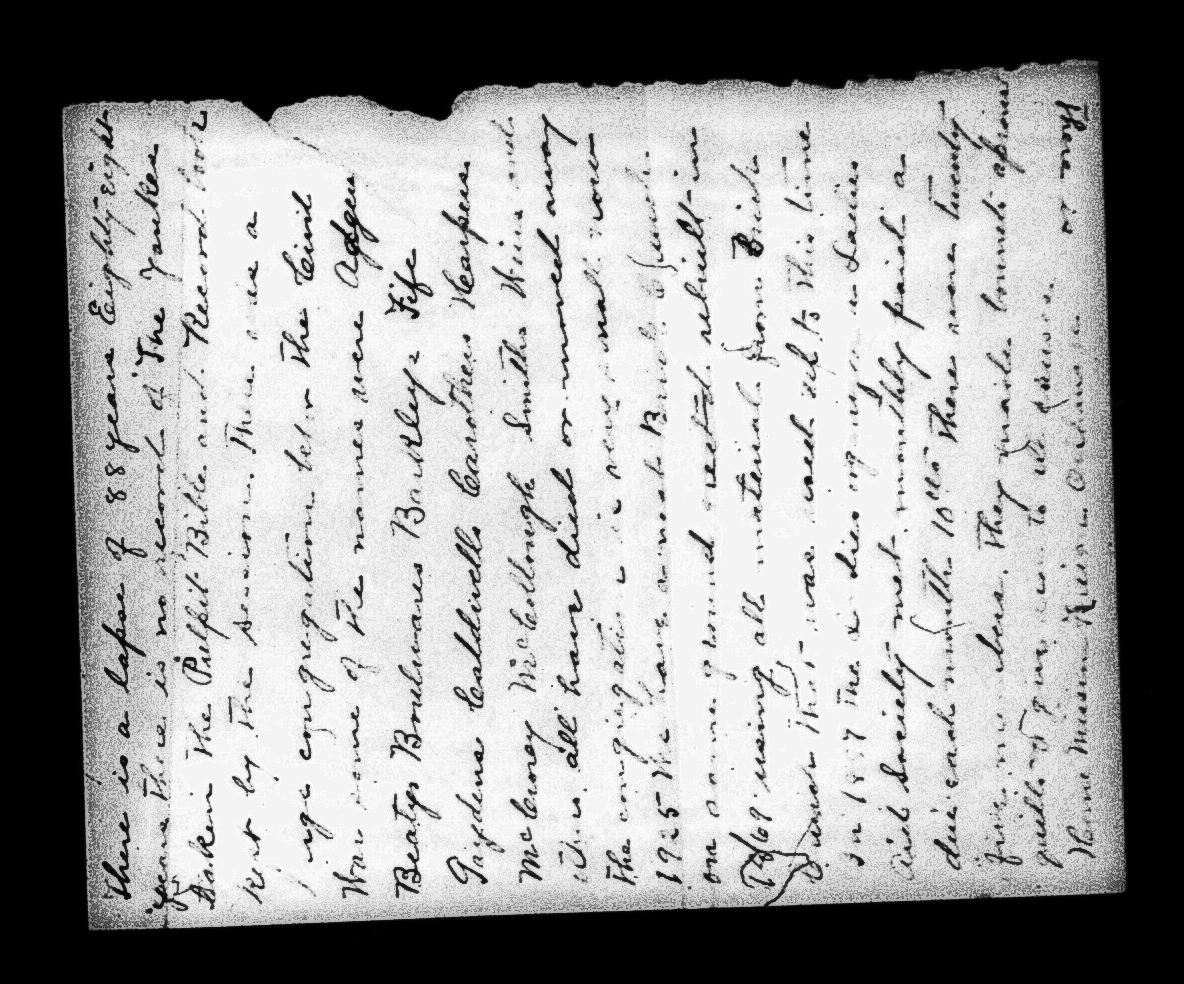 There is a lapse of 88 years Eighty-eight
years there is no record of The Yankees
taken The Pulpit Bible and Record book
kept by The Sessions There was a
large congregation before The Civil
War some of the names were
Beatys Boulwares Barkley = Fife
Gaydens Caldwells Carothers Harpers
McCluney McCollough Smiths Wins and
all have died or moved away
The congregation is very small now
1925 We have a neat Brick Church
on same ground rebuilt in
1869 using all material from Brick
Church That was used up to This time
In 1887 The Ladies organized a Ladies
Aid Society met monthly paid a
due each month 10 cts There were twenty
five members. They made bonnets aprons
quilts
Home Mission